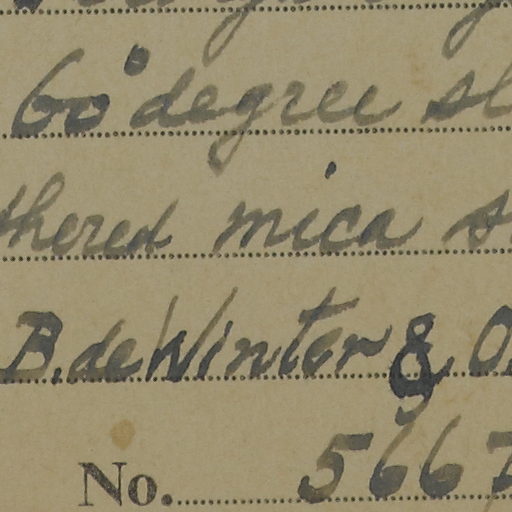 60° degree sl
thered mica s
B. de Winter & O.
No. 5667